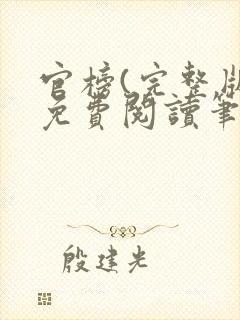 官榜(完整版
免費閱讀筆
殷建光